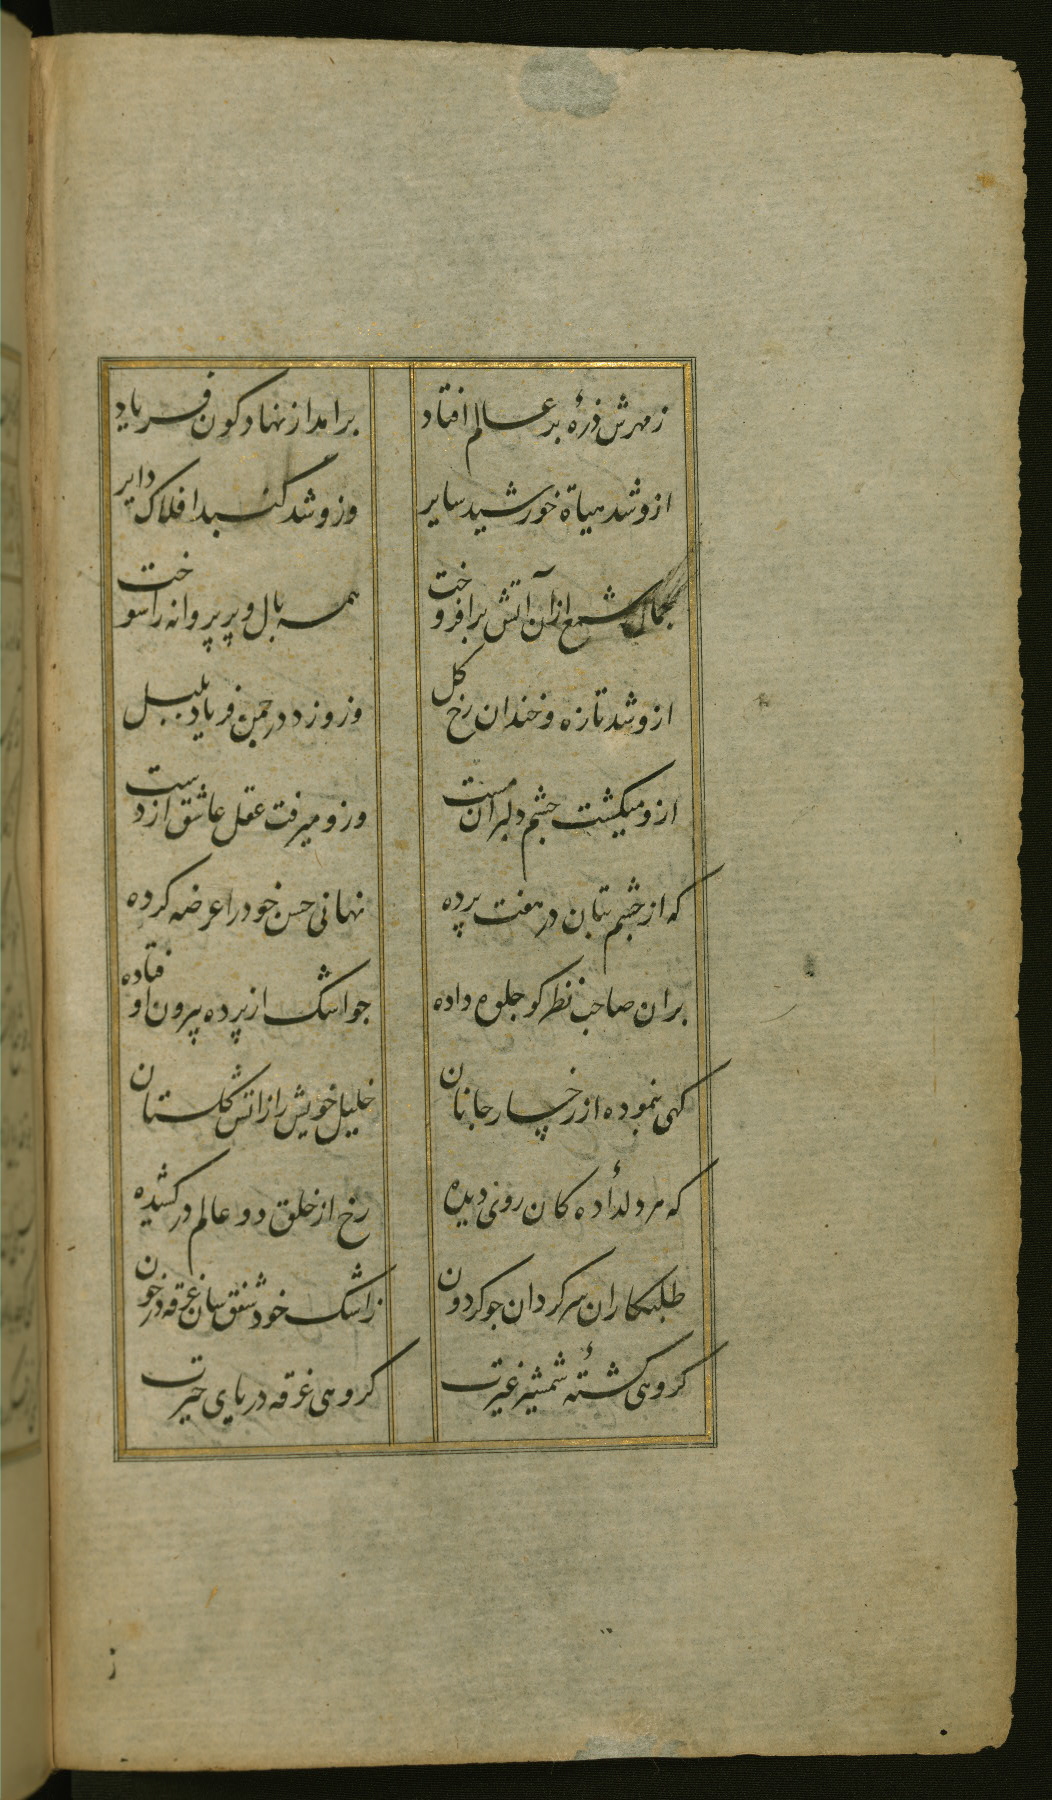 زمهرش ذرهٔ بر عالم افتاد
برامد از نهاد کون فریاد
ازو شد میاة خورشید سایر
وزو شد کنبد افلاک دایر
جمال شمع ازان آتش برافروخت
همه بال و پر پروانه را سوخت
ازو شد تازه و خندان رخ کل
وزو زد در چمن فریاد بلبل
ازو میکشت چشم دلبران مست
وزو میرفت عقل عاشق از دست
که از چشم بتان در هفت پرده
نهانی حسن خود را عرضه کرده
بران صاحب نظر کو جلوه داده
جو اشک از پرده بیرون اوفتاده
کهی بنموده از رخسار جانان
خلیل خویش را از اتش کلستان
که هر دلدأده کان روی دیده
رخ از خلق دو عالم در کشیده
طلبکاران سرکردان جو کردون
ز اشک خود شفق سان غرقه در خون
کروهی کشتهٔ شمشیر غیرت
کروهی غرقه دریای حیرت